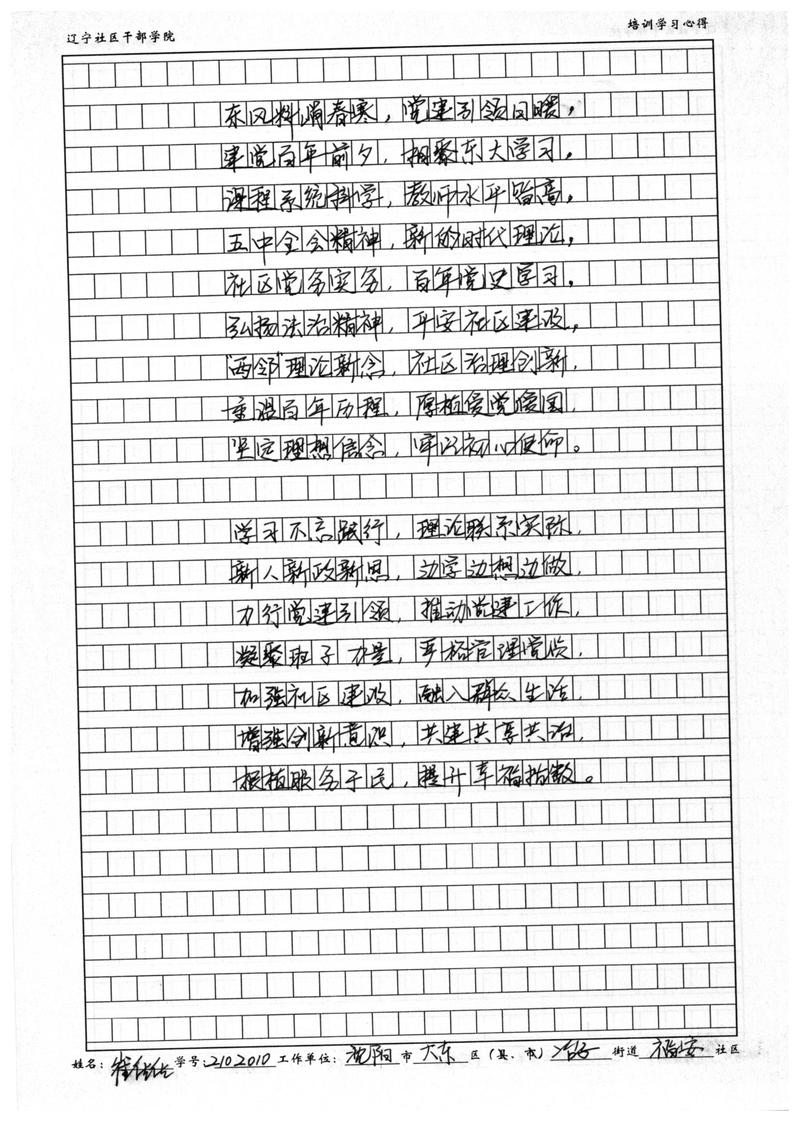 辽宁社区干部学院
培训学习心得
东风料峭春寒，党建引领日暖，
建党百年前夕，相聚东大学习，
课程系统科学，教师水平皆高，
五中全会精神，新的时代理论，
社区党务实务，百年党史学习，
弘扬法治精神，平安社区建设，
"两邻"理论新念，社区治理创新，
重温百年历程，厚植爱党爱国，
坚定理想信念，牢记初心使命。
学习不忘践行，理论联系实际，
新人新政新思，边学边想边做，
力行党建引领，推动党建工作，
凝聚班子力量，严格管理党员，
加强社区建设，融入群众生活，
增强创新意识，共建共享共治，
根植服务于民，提升幸福指数。
姓名： 学号：2102010 工作单位：沈阳市大东区（县、市） 街道福安社区